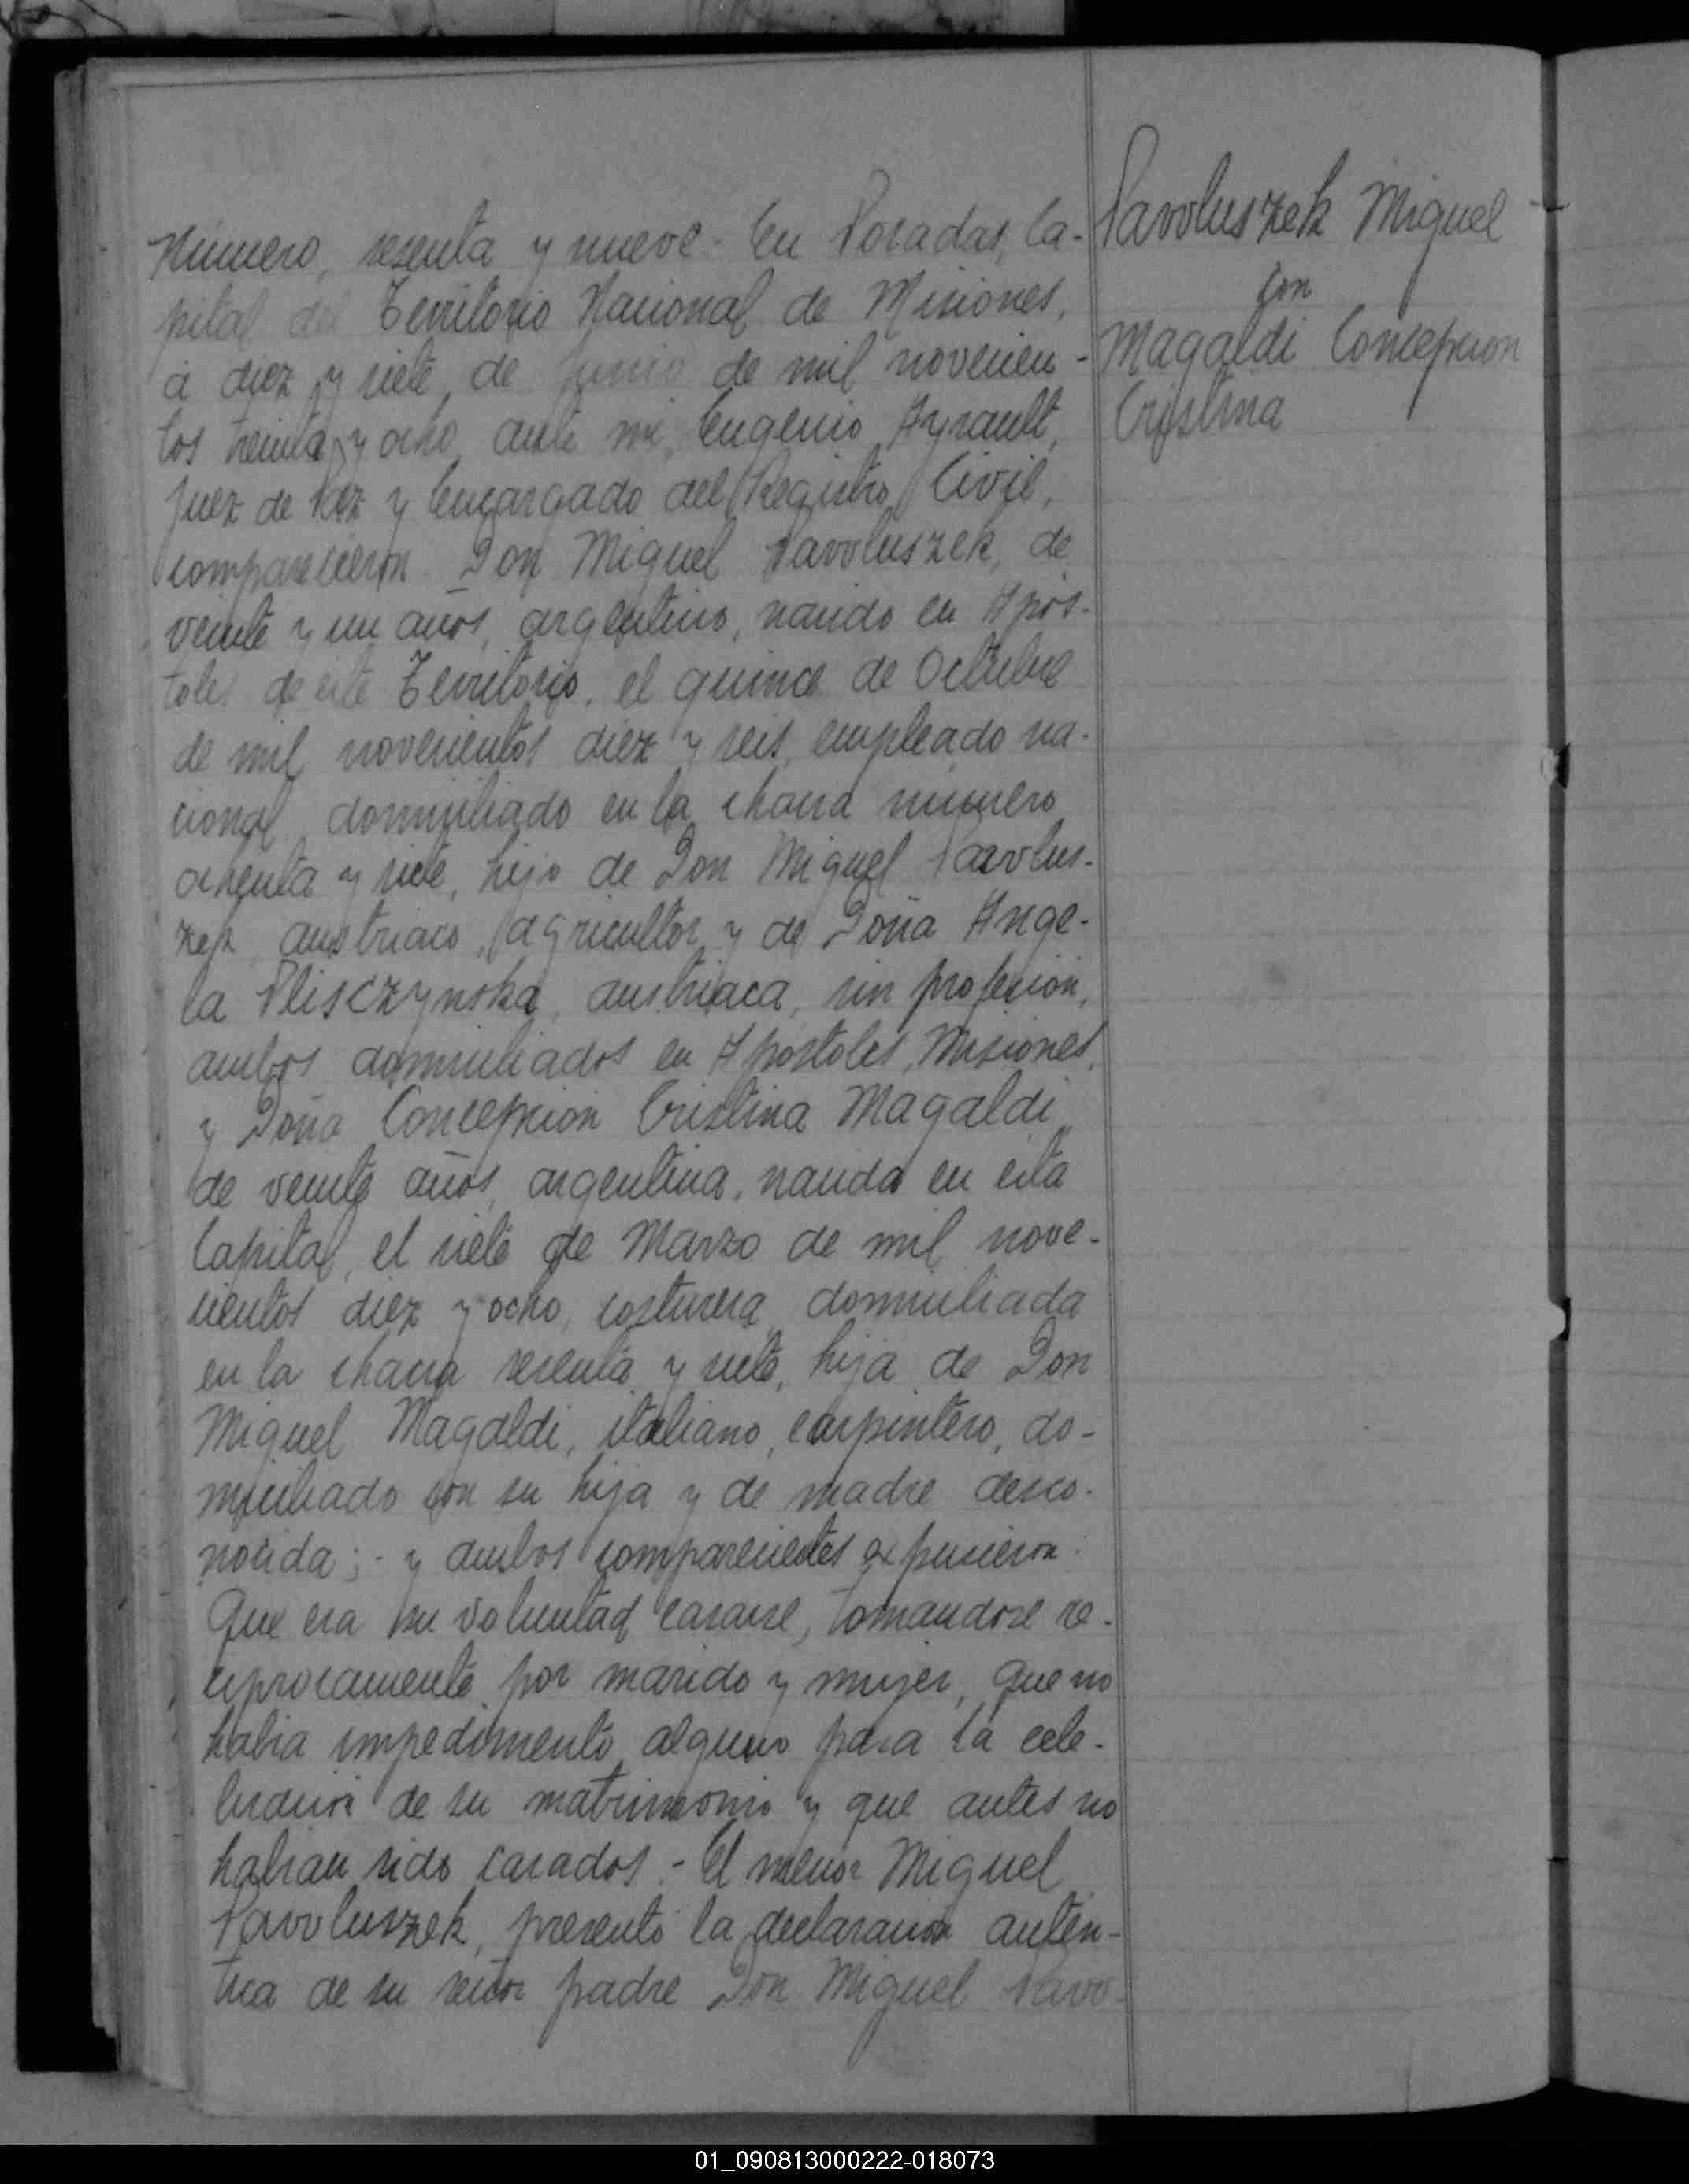 Número, sesenta y nueve.- En Posadas, Ca-
pital del Territorio Nacional de Misiones,
á diez y siete de Junio de mil novecien-
tos treinta y ocho, ante mi, Eugenio Ayrault,
Juez de Paz y Encargado del Registro Civil,
comparecieron Don Miguel Pavoluszek, de
veinte y un años, argentino, nacido en Após-
toles de este Territorio, el quince de Octubre
de mil novecientos diez y seis, empleado na-
cional, domiciliado en la chacra número
ochenta y siete, hijo de Don Miguel Pavolus-
zek, austriaco, agricultor y de Doña Ange-
la Plisczynska, austriaca, sin profesión,
ambos domiciliados en Apóstoles, Misiones,
y Doña Concepción Cristina Magaldi
de veinte años, argentina, nacida en esta
Capital, el siete de Marzo de mil nove-
cientos diez y ocho, costurera, domiciliada
en la chacra sesenta y siete, hija de Don
Miguel Magaldi, italiano, carpintero, do-
miciliado con su hija y de madre desco-
nocida;- y ambos comparecientes expusieron:
Que era su voluntad casarse, tomandose re-
ciprocamente por marido y mujer, que no
habia impedimento alguno para la cele-
bración de su matrimonio y que antes no
habian sido casados.- El menor Miguel
Pavoluszek, presentó la declaración autén-
tica de su señor padre Don Miguel Pavo-
Pavoluszek Miguel
con
Magaldi Concepcion
Cristina
01_090813000222-018073